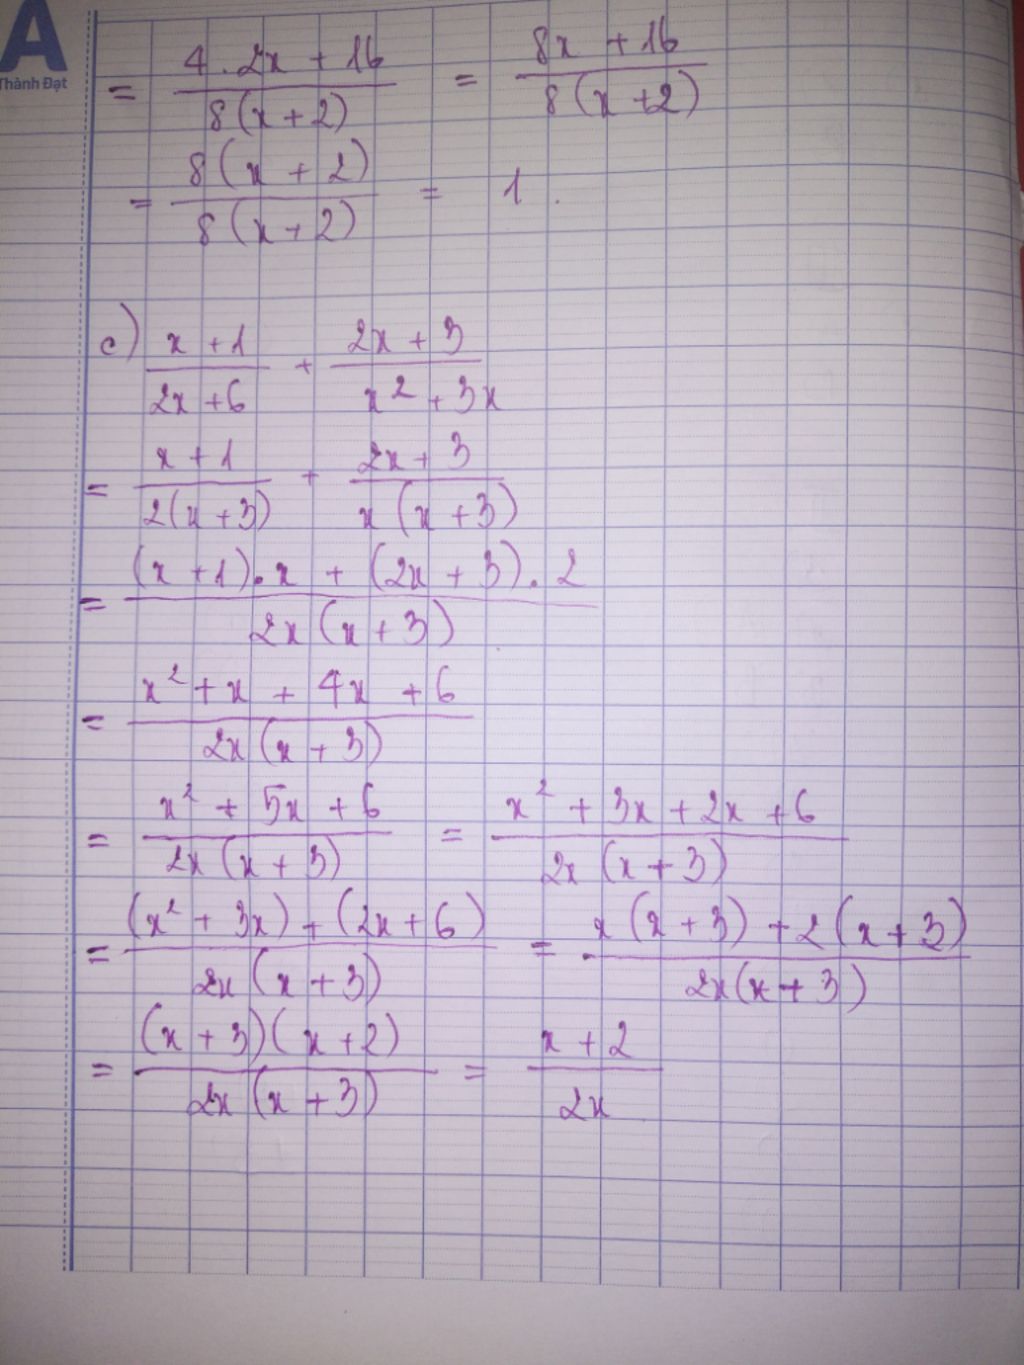 A
Thành Đạt
= (4 . 2x + 16)/(8(x + 2)) = (8x + 16)/(8(x + 2))
= (8(x + 2))/(8(x + 2)) = 1.
c) (x + 1)/(2x + 6) + (2x + 3)/(x² + 3x)
= (x + 1)/(2(x + 3)) + (2x + 3)/(x(x + 3))
= ((x + 1).x + (2x + 3).2)/(2x(x + 3))
= (x² + x + 4x + 6)/(2x(x + 3))
= (x² + 5x + 6)/(2x(x + 3)) = (x² + 3x + 2x + 6)/(2x(x + 3))
= ((x² + 3x) + (2x + 6))/(2x(x + 3)) = (x(x + 3) + 2(x + 3))/(2x(x + 3))
= ((x + 3)(x + 2))/(2x(x + 3)) = (x + 2)/(2x)